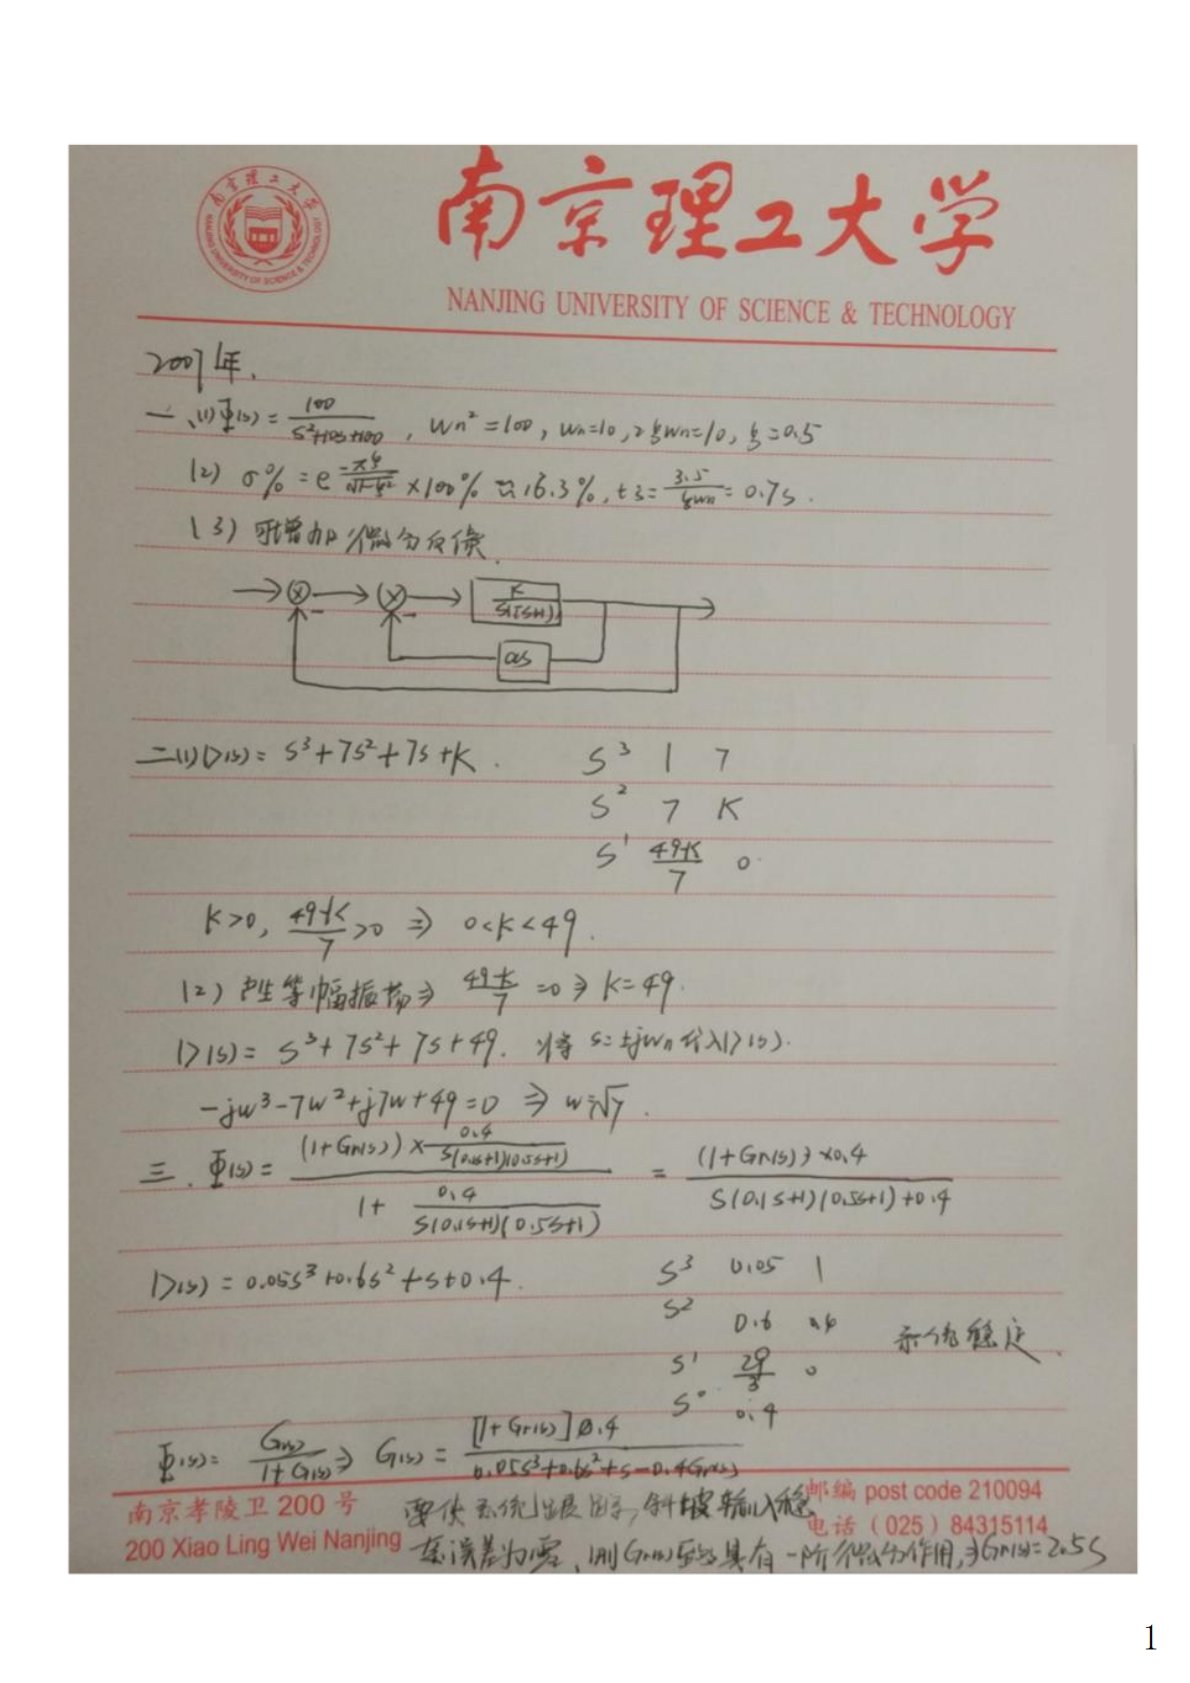 南京理工大学
NANJING UNIVERSITY OF SCIENCE & TECHNOLOGY
2007年.
一、(1) Φ(s) = 100/(s²+10s+100), ωn²=100, ωn=10, 2ξωn=10, ξ=0.5
(2) σ% = e^(-πξ/√(1-ξ²)) ×100% ≈ 16.3%, ts = 3.5/(ξωn) = 0.7s.
(3) 可增加微分反馈.
K/(s(Ts+1))
as
二(1) D(s) = s³+7s²+7s+K. s³ 1 7
s² 7 K
s¹ (49-K)/7 0
K>0, (49-K)/7 >0 ⇒ 0<K<49.
(2) 产生等幅振荡⇒ (49-K)/7 =0 ⇒ K=49.
D(s) = s³+7s²+7s+49. 将 s=±jωn 代入D(s).
-jω³-7ω²+j7ω+49=0 ⇒ ω=√7.
三. Φ(s) = ((1+Gr(s))× 0.4/(s(0.1s+1)(0.5s+1)))/(1+ 0.4/(s(0.1s+1)(0.5s+1))) = ((1+Gr(s))×0.4)/(s(0.1s+1)(0.5s+1)+0.4)
D(s) = 0.05s³+0.6s²+s+0.4. s³ 0.05 1
s² 0.6 0.4
系统稳定.
s¹ 29/3 0
s⁰ 0.4
Φ(s) = G(s)/(1+G(s)) ⇒ G(s) = ([1+Gr(s)]0.4)/(0.05s³+0.6s²+s-0.4Gr(s))
要使系统跟踪斜坡输入稳
态误差为零, 则Gr(s)至少具有一阶微分作用,⇒Gr(s)=2.5s
南京孝陵卫 200 号
200 Xiao Ling Wei Nanjing
邮编 post code 210094
电话（025）84315114
1